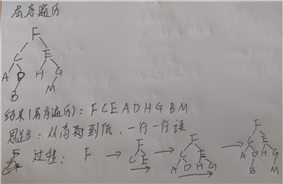 层序遍历
F
C E
A D H G
B M
结果(层序遍历): F C E A D H G B M
思路: 从高到低，一行一行读
过程: F → F C E → F C E A D H G → F C E A D H G B M